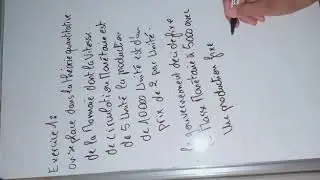 Exercice 1 :
on se place dans la théorie quantitative
de la Monnaie dont la vitesse
de circulation Monétaire est
de 5 Unité la production
de 10 000 Unité est d'un
prix de 2 par Unité.
le gouvernement decide fixe
Masse Monétaire à 5000 avec
Une production fixe